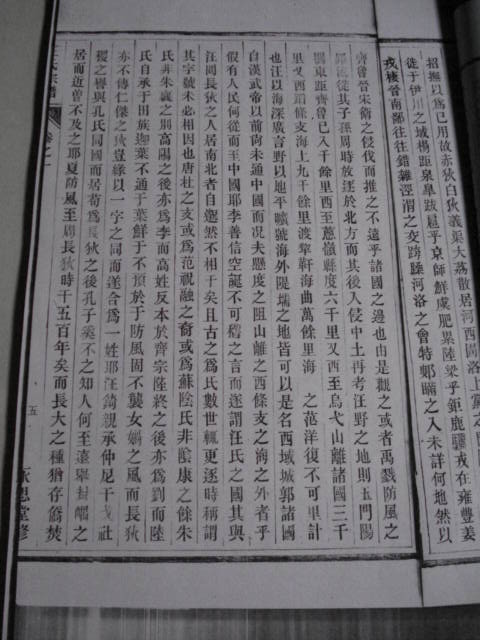 招撫以爲己用故赤狄白狄義渠大荔散居河西圁洛上黨之
徒于伊川之域楊距泉皋跋扈乎京師鮮虞肥累陸梁乎鉅鹿驪戎在雍豐姜
戎棲晉南鄙往往錯雜涇渭之交躋 河洛之會特鄋瞞之入未詳何地然以
齊魯晉宋衛之侵伐而推之不遠乎諸國之邊也由是觀之或者禹戮防風之
徙其子孫周時放逐於北方而其後人侵中土再考汪野之地則玉門陽
關東距齊魯已入千餘里西至蔥嶺縣度六千里又西至烏弋山離諸國三千
里又西瀕條支海上九千餘里渡犂軒海曲萬餘里海 之范洋復不可里計
也汪以海深廣言野以地平曠號海外隄壖之地皆可以是名西域城郭諸國
自漢武帝以前尚未通中國而况夫懸度之阻山離之西條支之海之外者乎
假有人民何從而至中國耶李善信空 不可稽之言而遂謂汪氏之國其與
汪罔長狄之人居南北者自邈然不相干矣且古之爲氏數世輒更逐時稱謂
其字號未必相因也唐杜之支或爲范祝融之裔或爲蘇陰氏非陰康之餘朱
氏非朱襄之別高陽之後亦爲李而高姓反本於齊宗陸終之後亦爲劉而陸
氏自承于田族迦葉不通于葉鮮于不預於于防風固不襲女媧之風而長狄
亦不傳仁傑之狄豈緣以一字之同而遂合爲一姓耶汪錡親承仲尼干戈社
稷之譽與孔氏同國而居苟爲長狄之後孔子奚不之知人何至遠舉封嵎之
居而近曾不及之耶夏防風至周長狄時千五百年矣而長大之種猶存僑焚
卷之一
五
承恩堂修